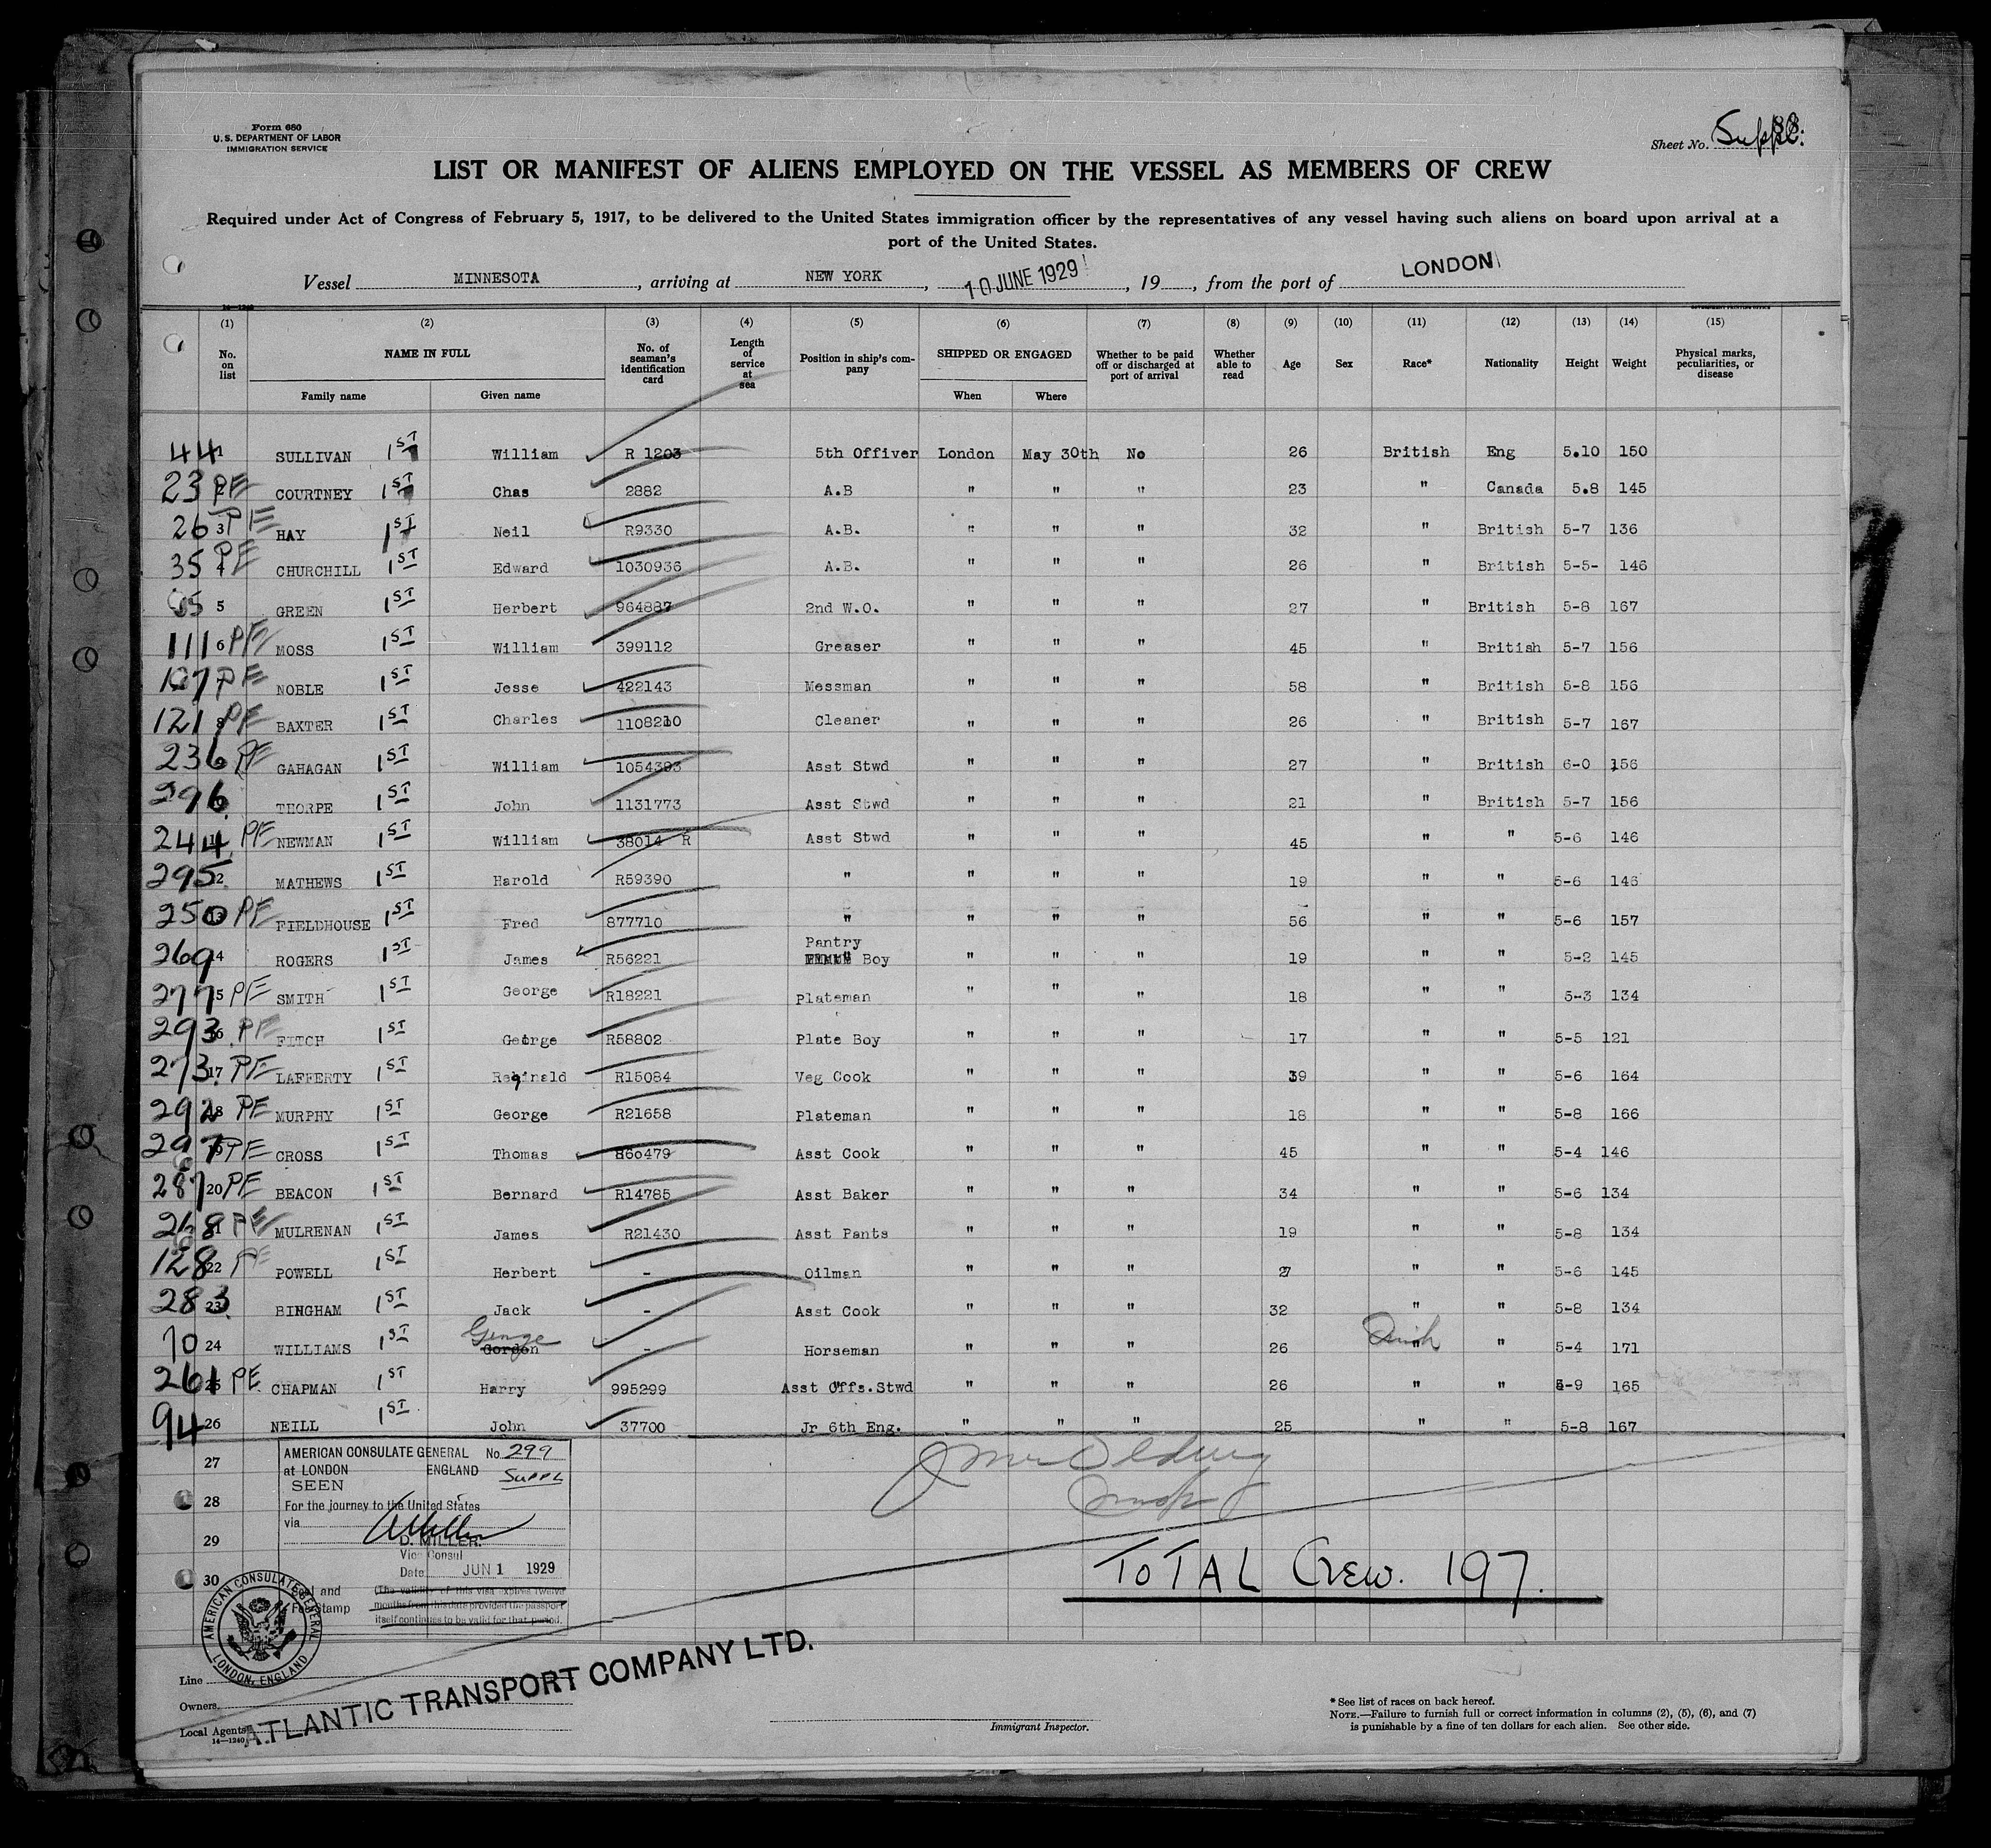 Form 680
U. S. DEPARTMENT OF LABOR
IMMIGRATION SERVICE
Sheet No. Suppl.
LIST OR MANIFEST OF ALIENS EMPLOYED ON THE VESSEL AS MEMBERS OF CREW
Required under Act of Congress of February 5, 1917, to be delivered to the United States immigration officer by the representatives of any vessel having such aliens on board upon arrival at a
port of the United States.
Vessel MINNESOTA, arriving at NEW YORK, 10 JUNE 1929, 19 , from the port of LONDON
(1) (2) (3) (4) (5) (6) (7) (8) (9) (10) (11) (12) (13) (14) (15)
No. on list NAME IN FULL Family name Given name No. of seaman's identification card Length of service at sea Position in ship's company SHIPPED OR ENGAGED When Where Whether to be paid off or discharged at port of arrival Whether able to read Age Sex Race* Nationality Height Weight Physical marks, peculiarities, or disease
44 1 SULLIVAN 1ST William R 1203 5th Offiver London May 30th No 26 British Eng 5.10 150
23 2 PE COURTNEY 1ST Chas 2882 A.B " " " 23 " Canada 5.8 145
26 3 PE HAY 1ST Neil R9330 A.B. " " " 32 " British 5-7 136
35 4 PE CHURCHILL 1ST Edward 1030936 A.B. " " " 26 " British 5-5- 146
5 GREEN 1ST Herbert 964887 2nd W.O. " " " 27 " British 5-8 167
111 6 PE MOSS 1ST William 399112 Greaser " " " 45 " British 5-7 156
107 7 PE NOBLE 1ST Jesse 422143 Messman " " " 58 " British 5-8 156
121 8 PE BAXTER 1ST Charles 1108210 Cleaner " " " 26 " British 5-7 167
236 PE GAHAGAN 1ST William 1054393 Asst Stwd " " " 27 " British 6-0 156
296 THORPE 1ST John 1131773 Asst Stwd " " " 21 " British 5-7 156
244 PE NEWMAN 1ST William 38014 R Asst Stwd " " " 45 " " 5-6 146
295 12 MATHEWS 1ST Harold R59390 " " " " 19 " " 5-6 146
250 13 PE FIELDHOUSE 1ST Fred 877710 " " " " 56 " " 5-6 157
269 14 ROGERS 1ST James R56221 Pantry Boy " " " 19 " " 5-2 145
277 15 PE SMITH 1ST George R18221 Plateman " " " 18 " " 5-3 134
293 16 PE FITCH 1ST George R58802 Plate Boy " " " 17 " " 5-5 121
273 17 PE LAFFERTY 1ST Reginald R15084 Veg Cook " " " 39 " " 5-6 164
292 18 PE MURPHY 1ST George R21658 Plateman " " " 18 " " 5-8 166
297 19 PE CROSS 1ST Thomas 860479 Asst Cook " " " 45 " " 5-4 146
287 20 PE BEACON 1ST Bernard R14785 Asst Baker " " " 34 " " 5-6 134
268 21 PE MULRENAN 1ST James R21430 Asst Pants " " " 19 " " 5-8 134
128 22 PE POWELL 1ST Herbert - Oilman " " " 27 " " 5-6 145
283 23 BINGHAM 1ST Jack - Asst Cook " " " 32 " " 5-8 134
70 24 WILLIAMS 1ST George Gordon - Horseman " " " 26 Irish " " 5-4 171
261 25 PE CHAPMAN 1ST Harry 995299 Asst Offs.Stwd " " " 26 " " 5-9 165
94 26 NEILL 1ST John 37700 Jr 6th Eng. " " " 25 " " 5-8 167
27
28
29
30
AMERICAN CONSULATE GENERAL No. 299
at LONDON ENGLAND SUPPL
SEEN
For the journey to the United States
via
D. MILLER.
Vice Consul
Date JUN 1 1929
(The validity of this visa expires twelve
months from this date provided the passport
itself continues to be valid for that period.
Seal and
Fee Stamp
AMERICAN CONSULATE GENERAL
LONDON, ENGLAND
TOTAL CREW. 197.
Line
Owners
Local Agents
ATLANTIC TRANSPORT COMPANY LTD.
14—1240
Immigrant Inspector.
* See list of races on back hereof.
NOTE.—Failure to furnish full or correct information in columns (2), (5), (6), and (7)
is punishable by a fine of ten dollars for each alien. See other side.